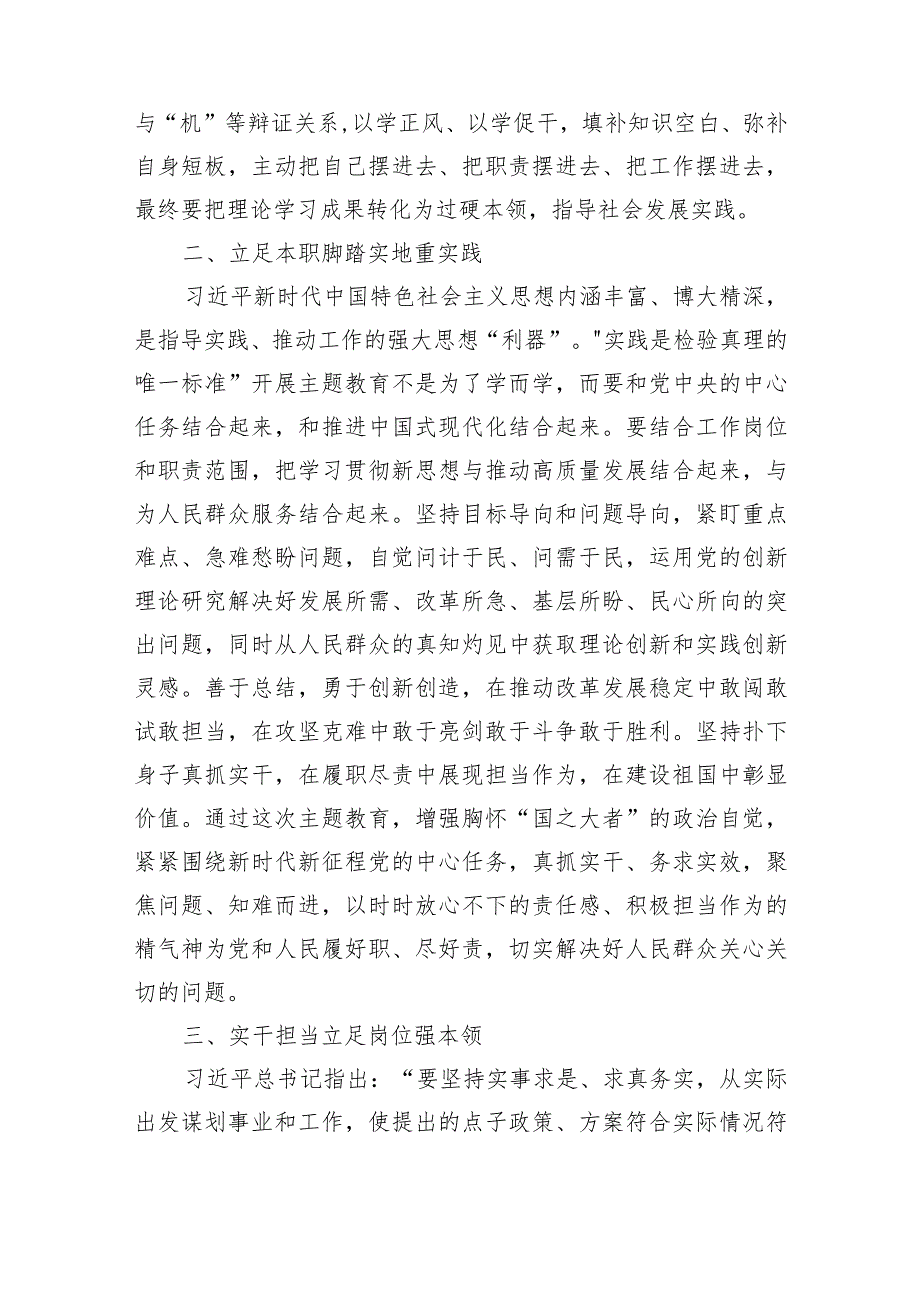 与“机”等辩证关系,以学正风、以学促干，填补知识空白、弥补
自身短板，主动把自己摆进去、把职责摆进去、把工作摆进去，
最终要把理论学习成果转化为过硬本领，指导社会发展实践。
二、立足本职脚踏实地重实践
习近平新时代中国特色社会主义思想内涵丰富、博大精深，
是指导实践、推动工作的强大思想“利器”。"实践是检验真理的
唯一标准”开展主题教育不是为了学而学，而要和党中央的中心
任务结合起来，和推进中国式现代化结合起来。要结合工作岗位
和职责范围，把学习贯彻新思想与推动高质量发展结合起来，与
为人民群众服务结合起来。坚持目标导向和问题导向，紧盯重点
难点、急难愁盼问题，自觉问计于民、问需于民，运用党的创新
理论研究解决好发展所需、改革所急、基层所盼、民心所向的突
出问题，同时从人民群众的真知灼见中获取理论创新和实践创新
灵感。善于总结，勇于创新创造，在推动改革发展稳定中敢闯敢
试敢担当，在攻坚克难中敢于亮剑敢于斗争敢于胜利。坚持扑下
身子真抓实干，在履职尽责中展现担当作为，在建设祖国中彰显
价值。通过这次主题教育，增强胸怀“国之大者”的政治自觉，
紧紧围绕新时代新征程党的中心任务，真抓实干、务求实效，聚
焦问题、知难而进，以时时放心不下的责任感、积极担当作为的
精气神为党和人民履好职、尽好责，切实解决好人民群众关心关
切的问题。
三、实干担当立足岗位强本领
习近平总书记指出：“要坚持实事求是、求真务实，从实际
出发谋划事业和工作，使提出的点子政策、方案符合实际情况符